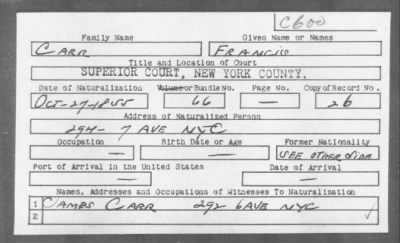 C600
Family Name Given Name or Names
CARR FRANCIS
Title and Location of Court
SUPERIOR COURT, NEW YORK COUNTY.
Date of Naturalization Volume or Bundle No. Page No. Copy of Record No.
OCT-27-1855 66 — 26
Address of Naturalized Person
294- 7 AVE NYC
Occupation Birth Date or Age Former Nationality
— — SEE OTHER SIDE
Port of Arrival in the United States Date of Arrival
— —
Names, Addresses and Occupations of Witnesses To Naturalization
1 JAMES CARR 292 6 AVE NYC
2